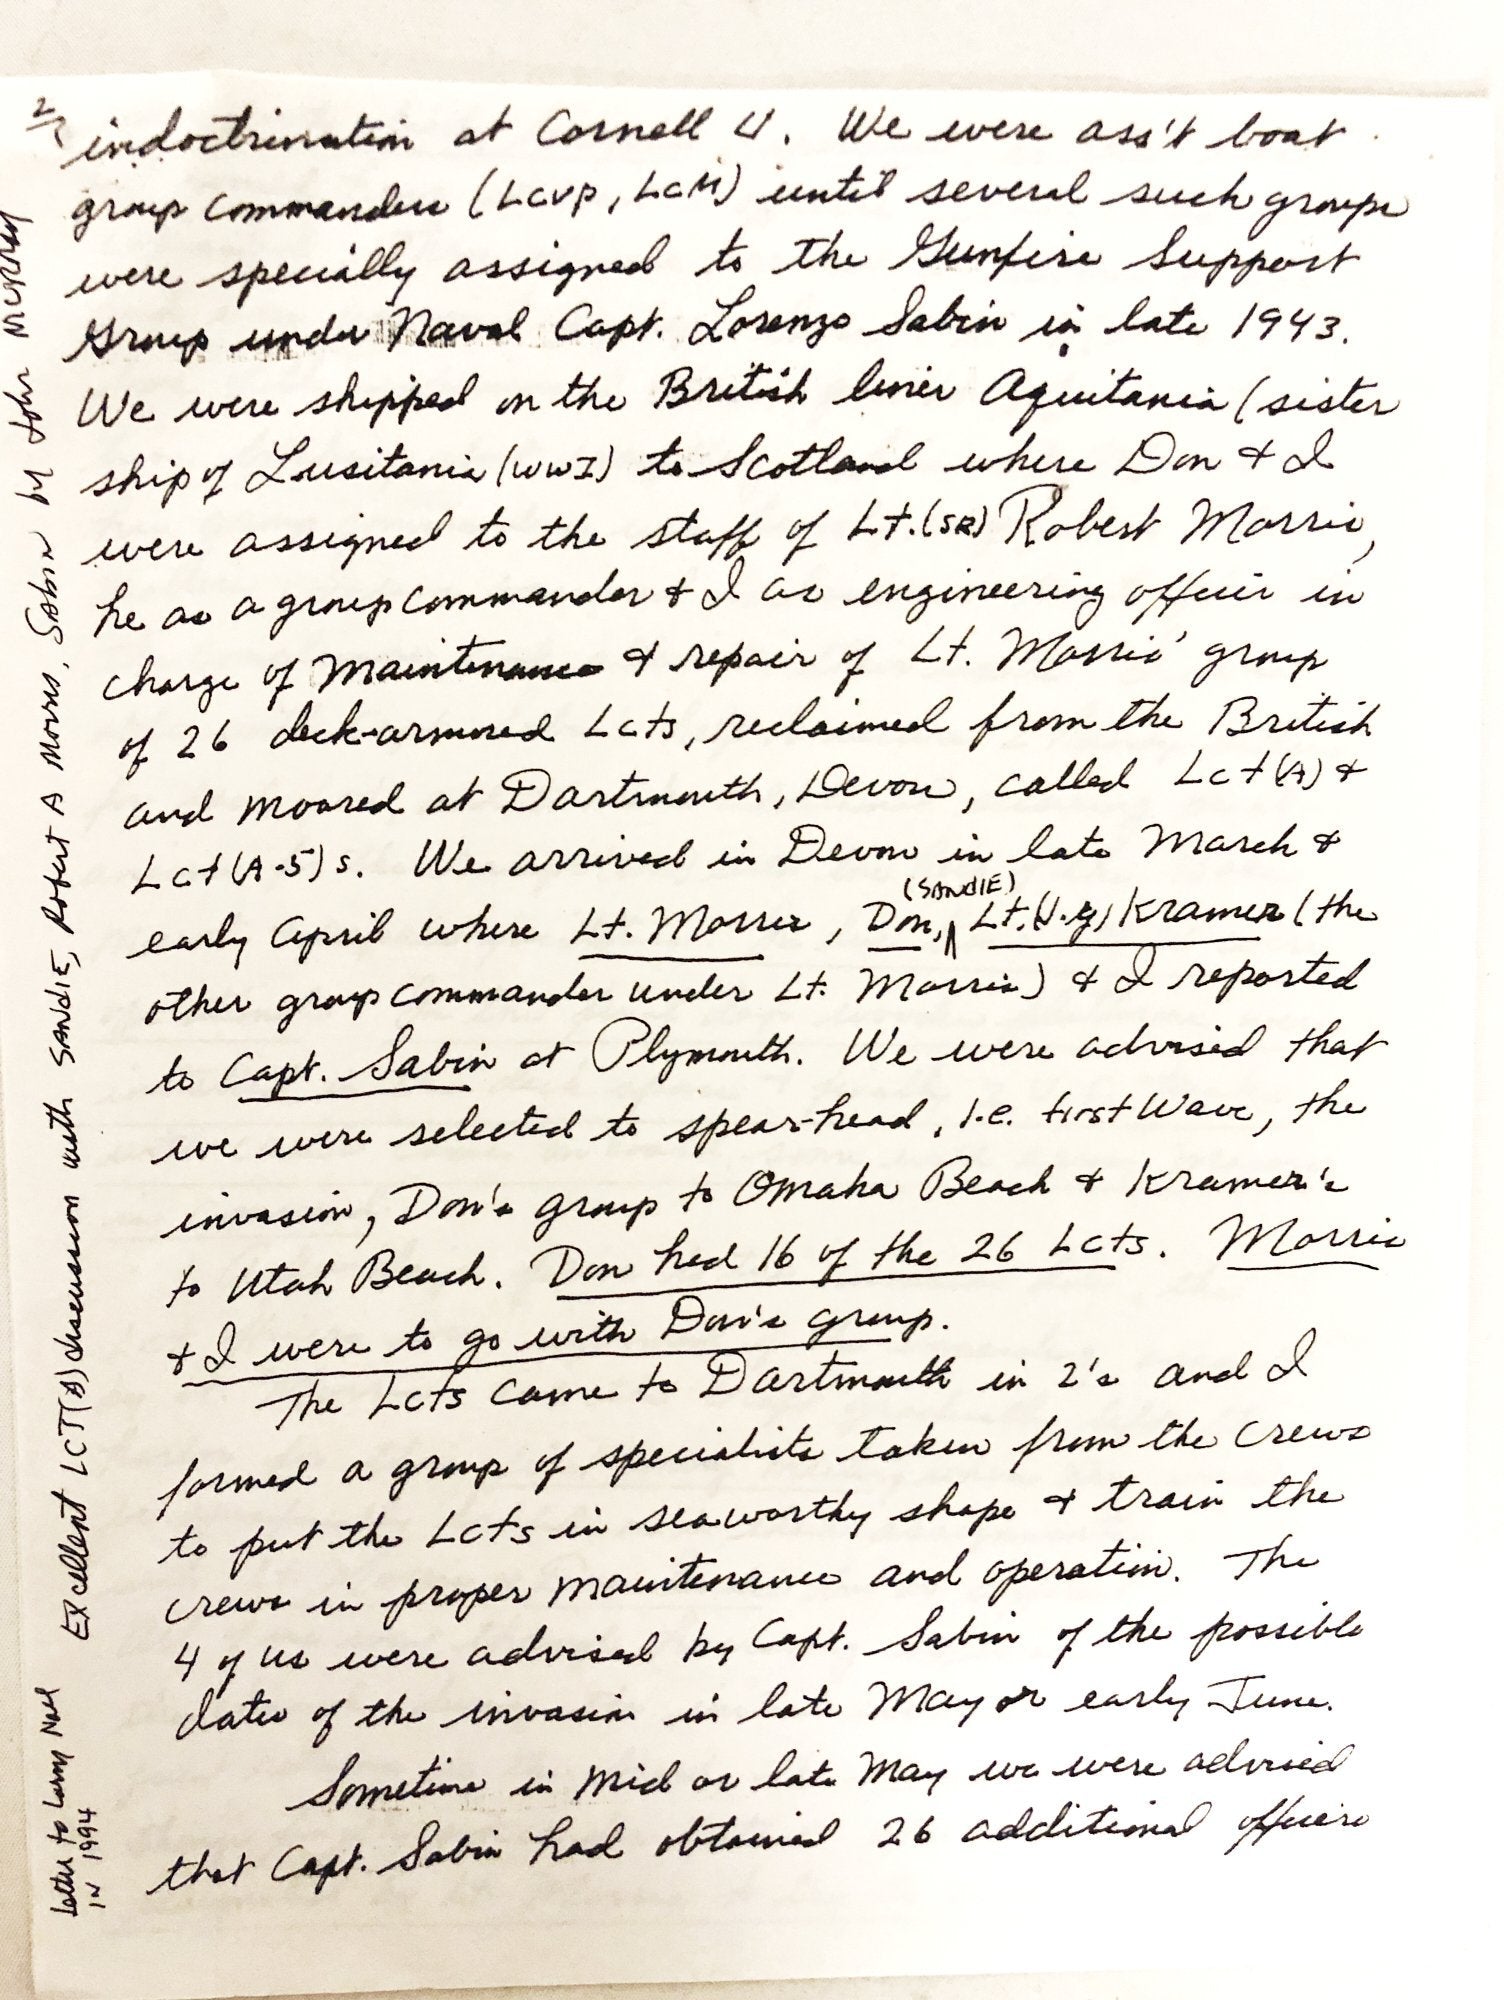 2/
indoctrination at Cornell U. We were ass't boat
group commanders (LCVP, LCM) until several such groups
were specially assigned to the Gunfire Support
Group under Naval Capt. Lorenzo Sabin in late 1943.
We were shipped on the British liner Aquitania (sister
ship of Lusitania (WWI) to Scotland where Don & I
were assigned to the staff of Lt.(SR) Robert Morris,
he as a group commander & I as engineering officer in
charge of maintenance & repair of Lt. Morris' group
of 26 deck-armored Lcts, reclaimed from the British
and moored at Dartmouth, Devon, called Lct(A) &
Lct(A-5)s. We arrived in Devon in late March &
(SANDIE)
early April where Lt. Morris, Don, Lt.(J.g) Kramer (the
other group commander under Lt. Morris) & I reported
to Capt. Sabin at Plymouth. We were advised that
we were selected to spear-head, i.e. first Wave, the
invasion, Don's group to Omaha Beach & Kramer's
to Utah Beach. Don had 16 of the 26 Lcts. Morris
& I were to go with Don's group.
The Lcts came to Dartmouth in 2's and I
formed a group of specialists taken from the crews
to put the Lcts in seaworthy shape & train the
crews in proper maintenance and operation. The
4 of us were advised by Capt. Sabin of the possible
dates of the invasion in late May or early June.
Sometime in mid or late May we were advised
that Capt. Sabin had obtained 26 additional officers
Excellent LCT(A) discussion with SANDIE, Robert A Morris, Sabin by John
Letter to Larry
IN 1994